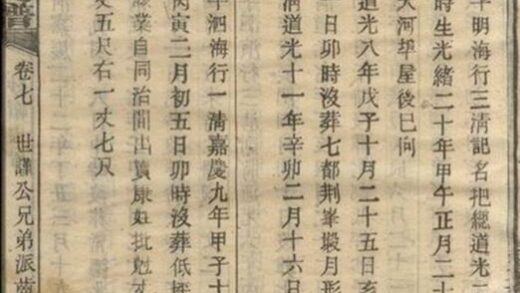 明海行三清記名把總道光二
時生光緒二十年甲午正月二
大河塅屋後巳向
道光八年戊子十月二十五日亥
日卯時沒葬七都荆峯塅月形
道光十一年辛卯二月十六日
泗海行一清嘉慶九年甲子十
丙寅二月初五日卯時沒葬低
業自同治間出賣康姓批
丈五尺右一丈七尺
譜
卷七
世謹公兄弟派齒